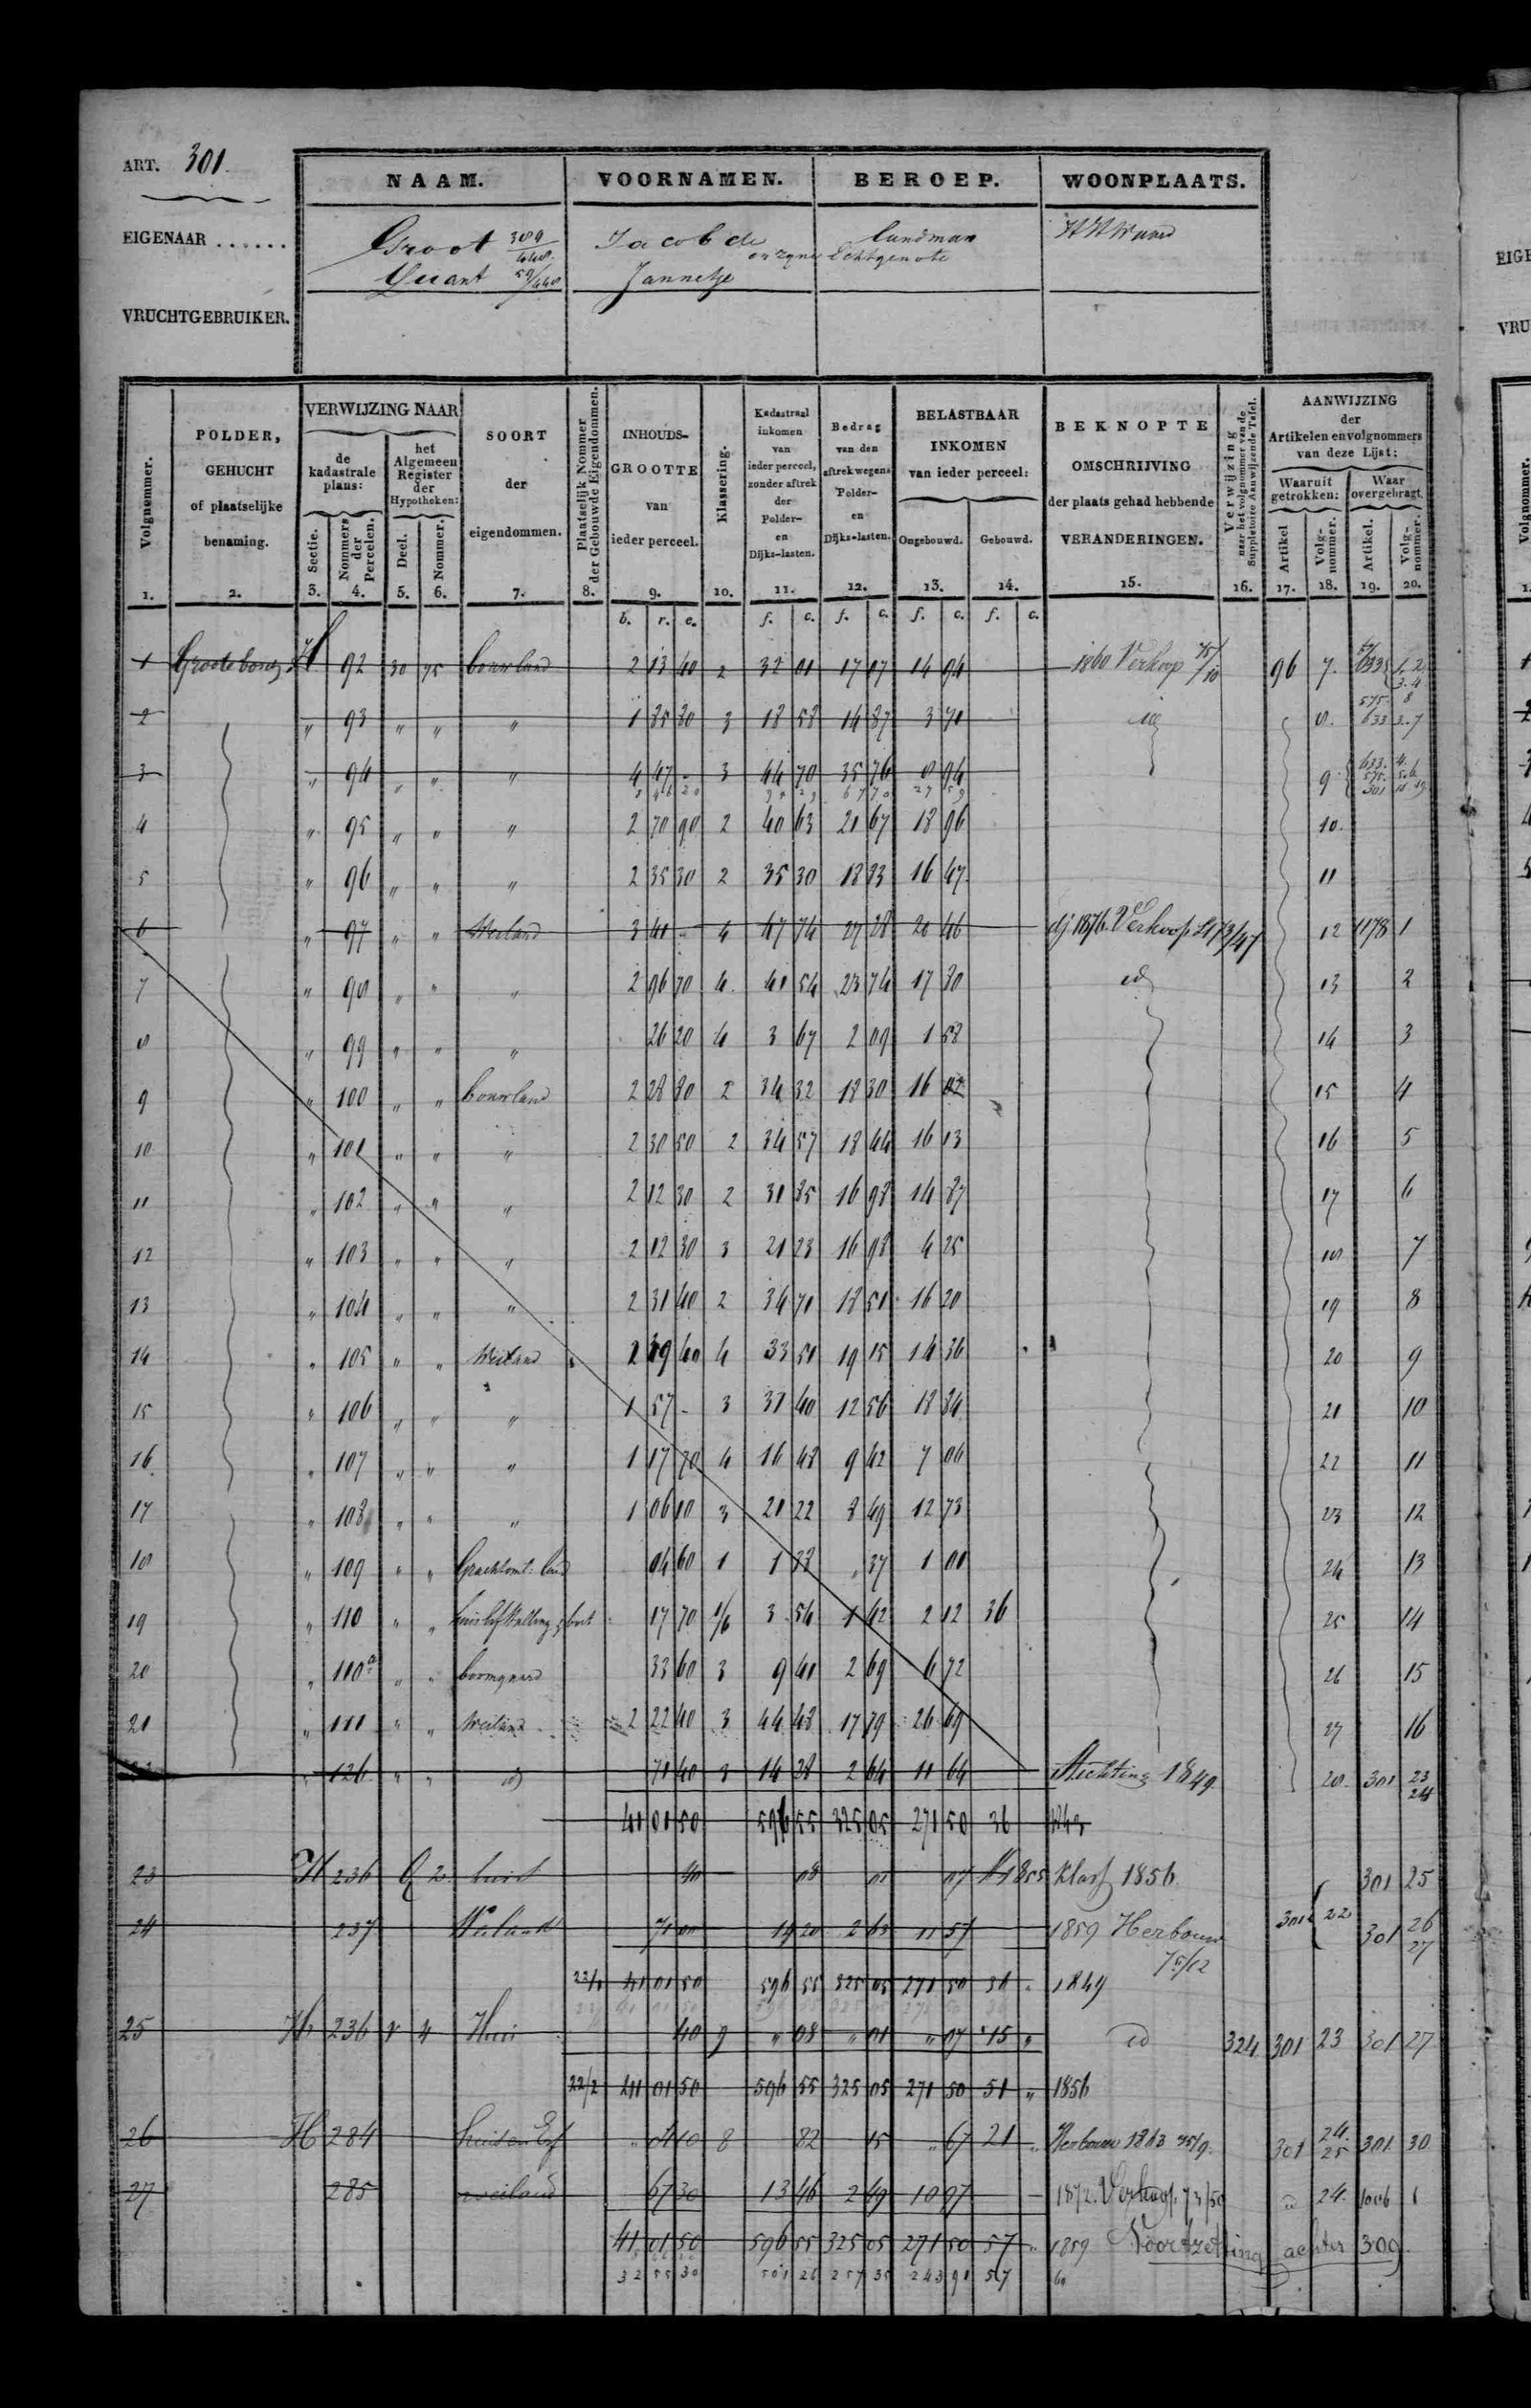 ART. 301.
NAAM. VOORNAMEN. BEROEP. WOONPLAATS.
EIGENAAR ......
Groot 389/448 Jacob de landman
en zyne Echtgenote
Quant 59/448 Jannetje
VRUCHTGEBRUIKER.
Volgnommer.
POLDER, GEHUCHT of plaatselijke benaming.
VERWIJZING NAAR
de kadastrale plans:
het Algemeen Register der Hypotheken:
Sectie.
Nommers der Perceelen.
Deel.
Nommer.
SOORT der eigendommen.
Plaatselijk Nommer der Gebouwde Eigendommen.
INHOUDS-GROOTTE van ieder perceel.
Klassering.
Kadastraal inkomen van ieder perceel, zonder aftrek der Polder- en Dijks-lasten.
Bedrag van den aftrek wegens Polder- en Dijks-lasten.
BELASTBAAR INKOMEN van ieder perceel:
Ongebouwd. Gebouwd.
BEKNOPTE OMSCHRIJVING der plaats gehad hebbende VERANDERINGEN.
Verwijzing naar het volgnommer van de Suppletoire Aanwijzende Tafel.
AANWIJZING der Artikelen en volgnommers van deze Lijst:
Waaruit getrokken: Waar overgebragt.
Artikel Volg-nommer. Artikel. Volg-nommer.
1. 2. 3. 4. 5. 6. 7. 8. 9. 10. 11. 12. 13. 14. 15. 16. 17. 18. 19. 20.
b. r. e. f. c. f. c. f. c. f. c.
1 H 92 30 75 bouwland 2 13 40 2 32 01 17 07 14 94 1860 Verkoop 75/10 96 7.
2 " 93 " " " 1 85 80 3 18 58 14 87 3 71 id 8. 575. 8 633 2.7
3 " 94 " " " 4 47 - 3 44 70 35 76 8 94 9
4 " 95 " " " 2 70 90 2 40 63 21 67 18 96 10.
5 " 96 " " " 2 35 30 2 35 30 18 83 16 47 11
6 " 97 " " Weiland 3 41 - 4 47 74 27 28 20 46 dj. 1876. Verkoop 12 1178 1
7 " 98 " " " 2 96 70 4 41 54 23 74 17 80 id 13 2
8 " 99 " " " 26 20 4 3 67 2 09 1 58 14 3
9 " 100 " " bouwland 2 28 80 2 34 32 18 30 16 02 15 4
10 " 101 " " " 2 30 50 2 34 57 18 44 16 13 16 5
11 " 102 " " " 2 12 30 2 31 85 16 98 14 87 17 6
12 " 103 " " " 2 12 30 3 21 23 16 98 4 25 18 7
13 " 104 " " " 2 31 40 2 34 71 18 51 16 20 19 8
14 " 105 " " Weiland 2 39 40 4 33 51 19 15 14 36 20 9
15 " 106 " " " 1 57 - 3 31 40 12 56 18 84 21 10
16 " 107 " " " 1 17 70 4 16 48 9 42 7 06 22 11
17 " 108 " " " 1 06 10 3 21 22 8 49 12 73 23 12
18 " 109 " " 04 60 1 1 38 " 37 1 01 24 13
19 " 110 " " 17 70 1/6 3 54 1 42 2 12 36 25 14
20 " 110a " " boomgaard 33 60 3 9 41 2 69 6 72 26 15
21 " 111 " " Weiland 2 22 40 3 44 48 17 79 26 69 27 16
126 " " id 71 40 3 14 28 2 64 11 64 Stichting 1849 28. 301 23 24
41 01 50 596 55 325 05 271 50 36
23 H 236 2 40 08 01 07 1855 Klass 1856. 301 25
24 237 Weiland 71 00 14 20 2 63 11 57 1859 Herbouw 75/12 301 22 301 26 27
22/1 41 01 50 596 55 325 05 271 50 36 1849
25 H 236 Huis 40 9 " 08 " 01 " 07 15 " id 324 301 23 301 27
22/2 41 01 50 596 55 325 05 271 50 51 " 1856
26 H 284 Huis en Erf 4 10 8 82 15 " 67 21 " Herbouw 1863 75/9. 301 24. 25 301 30
27 285 weiland 67 30 13 46 2 49 10 97 1872. 73/50 24. 1006 1
41 01 50 596 55 325 05 271 50 57 " 1859 Voortzetting achter 309.
32 55 30 501 26 257 35 243 91 57 60
EIGE
VRU
Volgnommer.